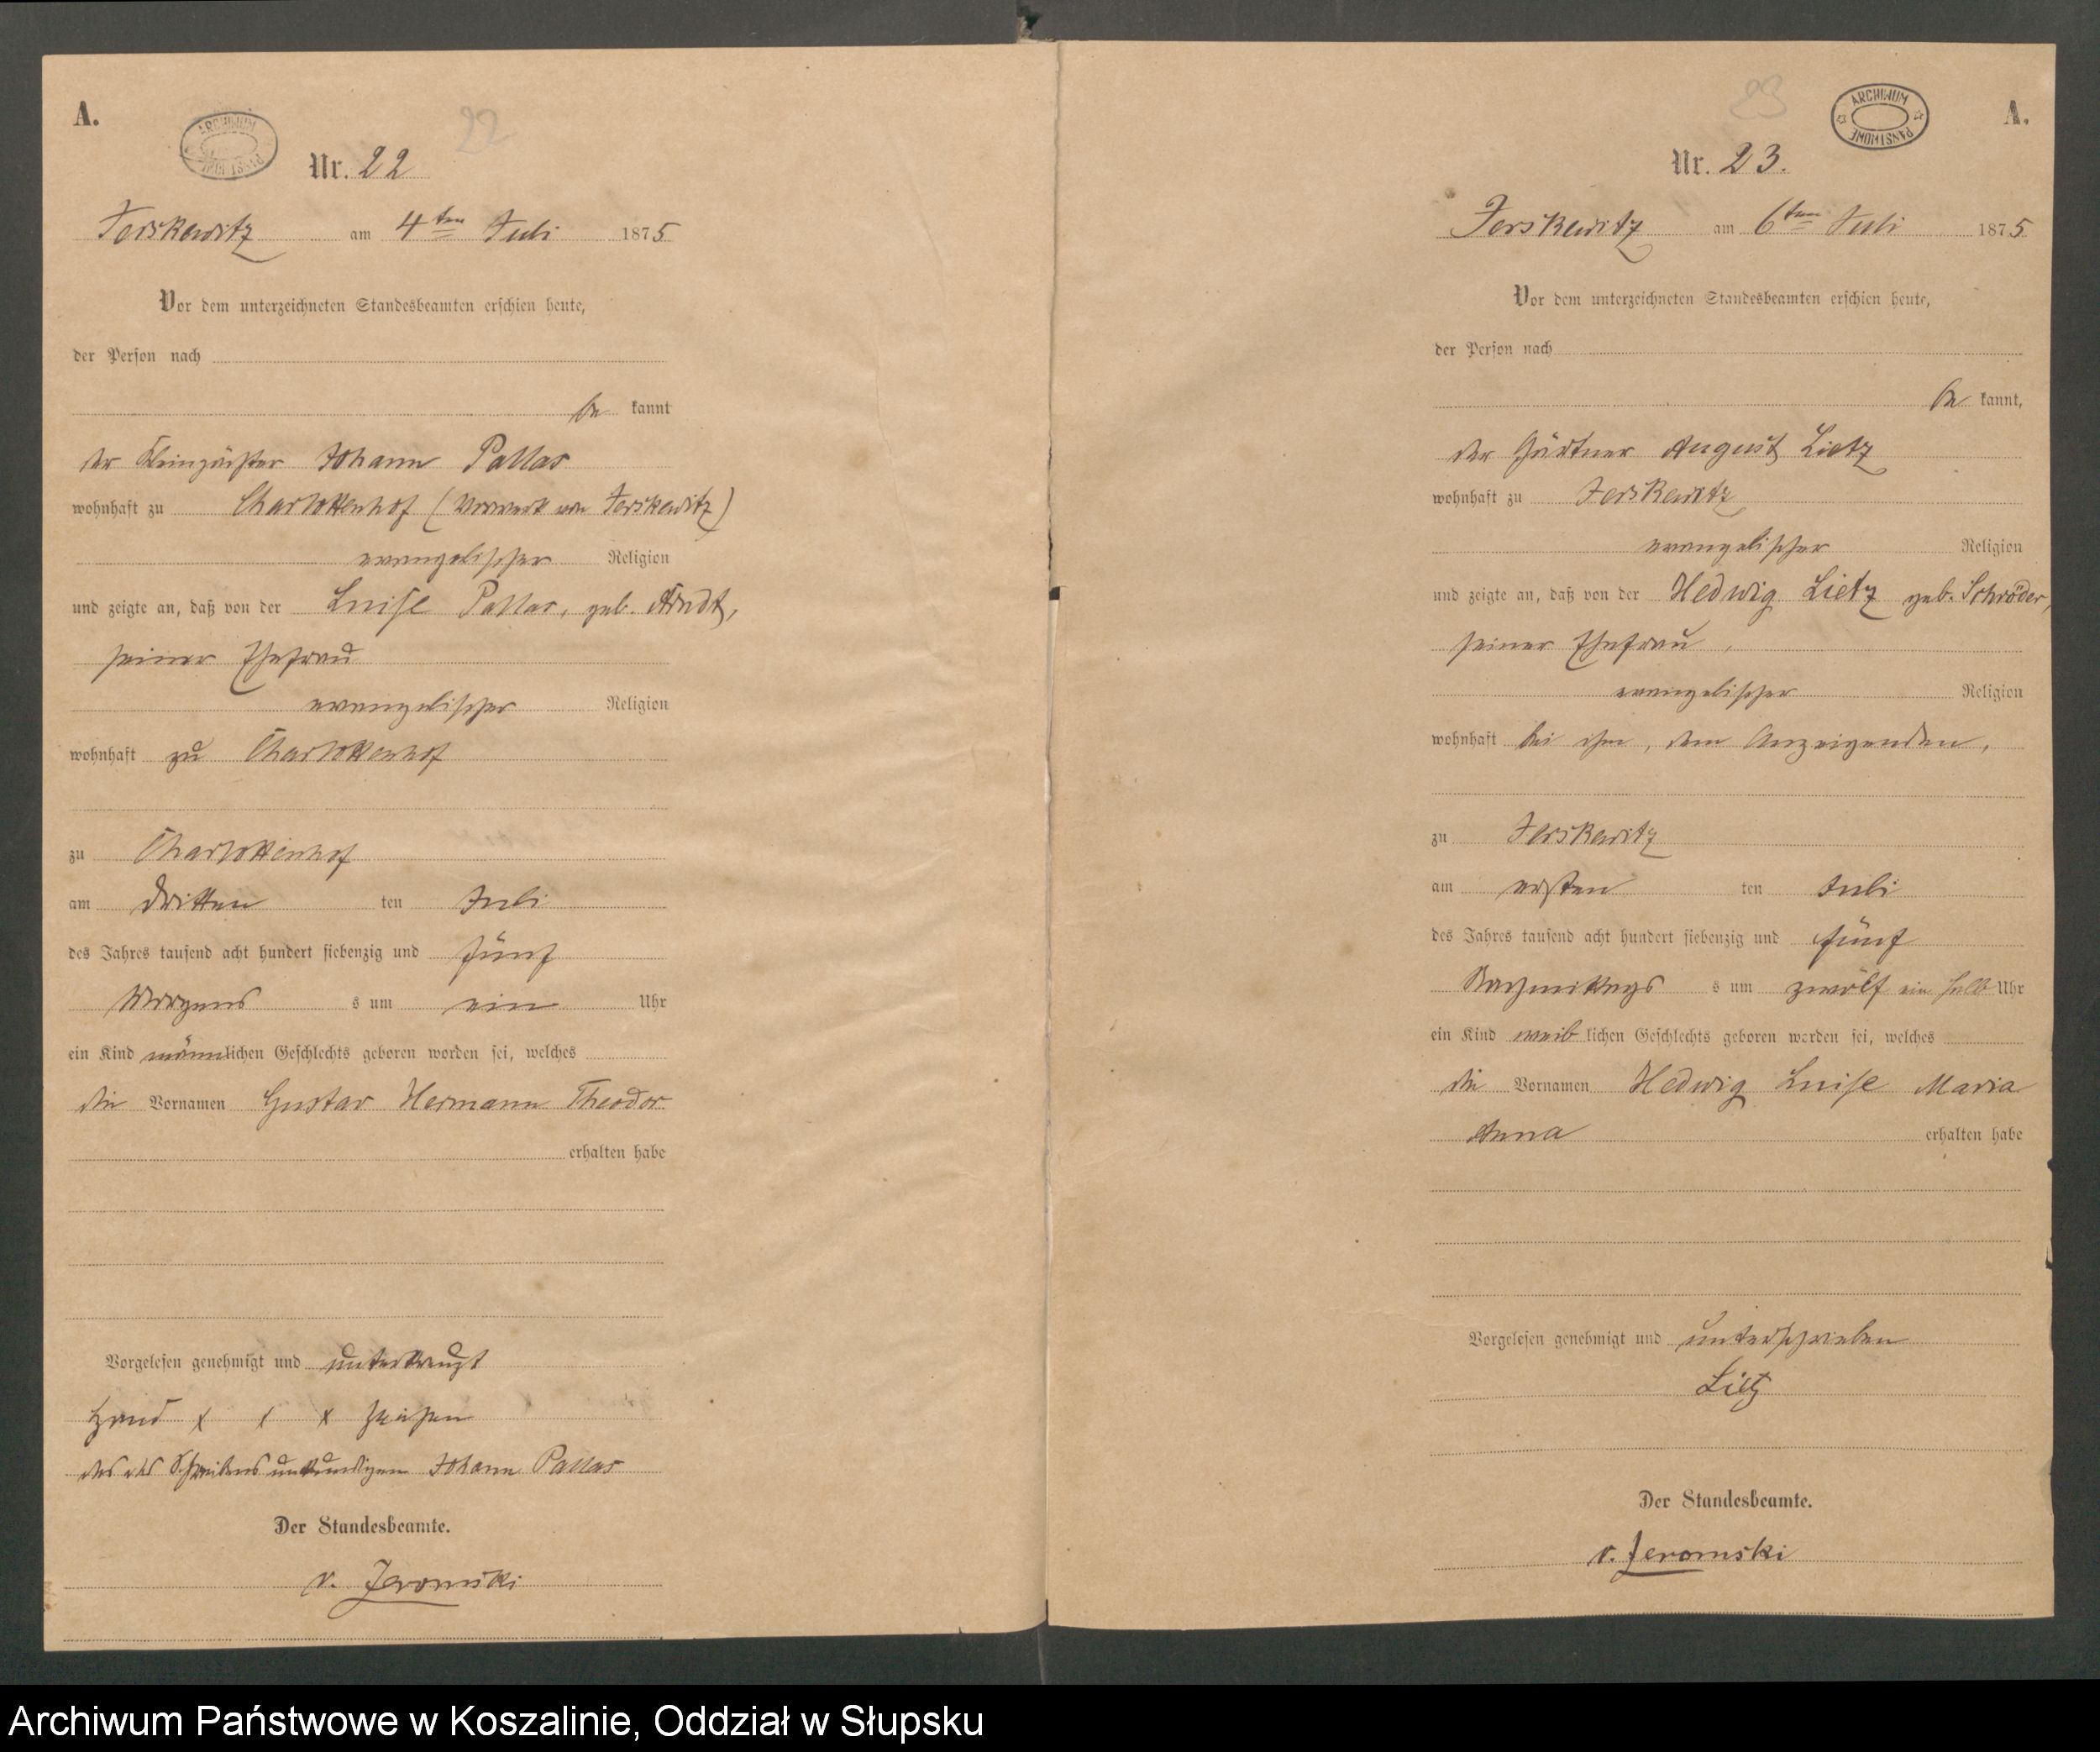 A.
ARCHIWUM PAŃSTWOWE
22
Nr. 22
Jerskewitz am 4ten Juli 1875
Vor dem unterzeichneten Standesbeamten erschien heute,
der Person nach
be kannt
der Kleinpächter Johann Pallas
wohnhaft zu Charlottenhof (Vorwerk von Jerskewitz)
evangelischer Religion
und zeigte an, daß von der Luise Pallas, geb. Arndt,
seiner Ehefrau
evangelischer Religion
wohnhaft zu Charlottenhof
zu Charlottenhof
am dritten ten Juli
des Jahres tausend acht hundert siebenzig und fünf
Morgens s um ein Uhr
ein Kind männlichen Geschlechts geboren worden sei, welches
die Vornamen Gustav Hermann Theodor
erhalten habe
Vorgelesen genehmigt und unterkreuzt
Hand x x x zeichen
des des Schreibens unkundigen Johann Pallas
Der Standesbeamte.
v. Jeromski
23
ARCHIWUM PAŃSTWOWE
A.
Nr. 23.
Jerskewitz am 6ten Juli 1875
Vor dem unterzeichneten Standesbeamten erschien heute,
der Person nach
be kannt,
der Gärtner August Lietz
wohnhaft zu Jerskewitz
evangelischer Religion
und zeigte an, daß von der Hedwig Lietz geb. Schröder,
seiner Ehefrau,
evangelischer Religion
wohnhaft bei ihm, dem Anzeigenden,
zu Jerskewitz
am ersten ten Juli
des Jahres tausend acht hundert siebenzig und fünf
Nachmittags s um zwölf ein halb Uhr
ein Kind weib lichen Geschlechts geboren worden sei, welches
die Vornamen Hedwig Luise Maria
Anna erhalten habe
Vorgelesen genehmigt und unterschrieben
Lietz
Der Standesbeamte.
v. Jeromski
Archiwum Państwowe w Koszalinie, Oddział w Słupsku